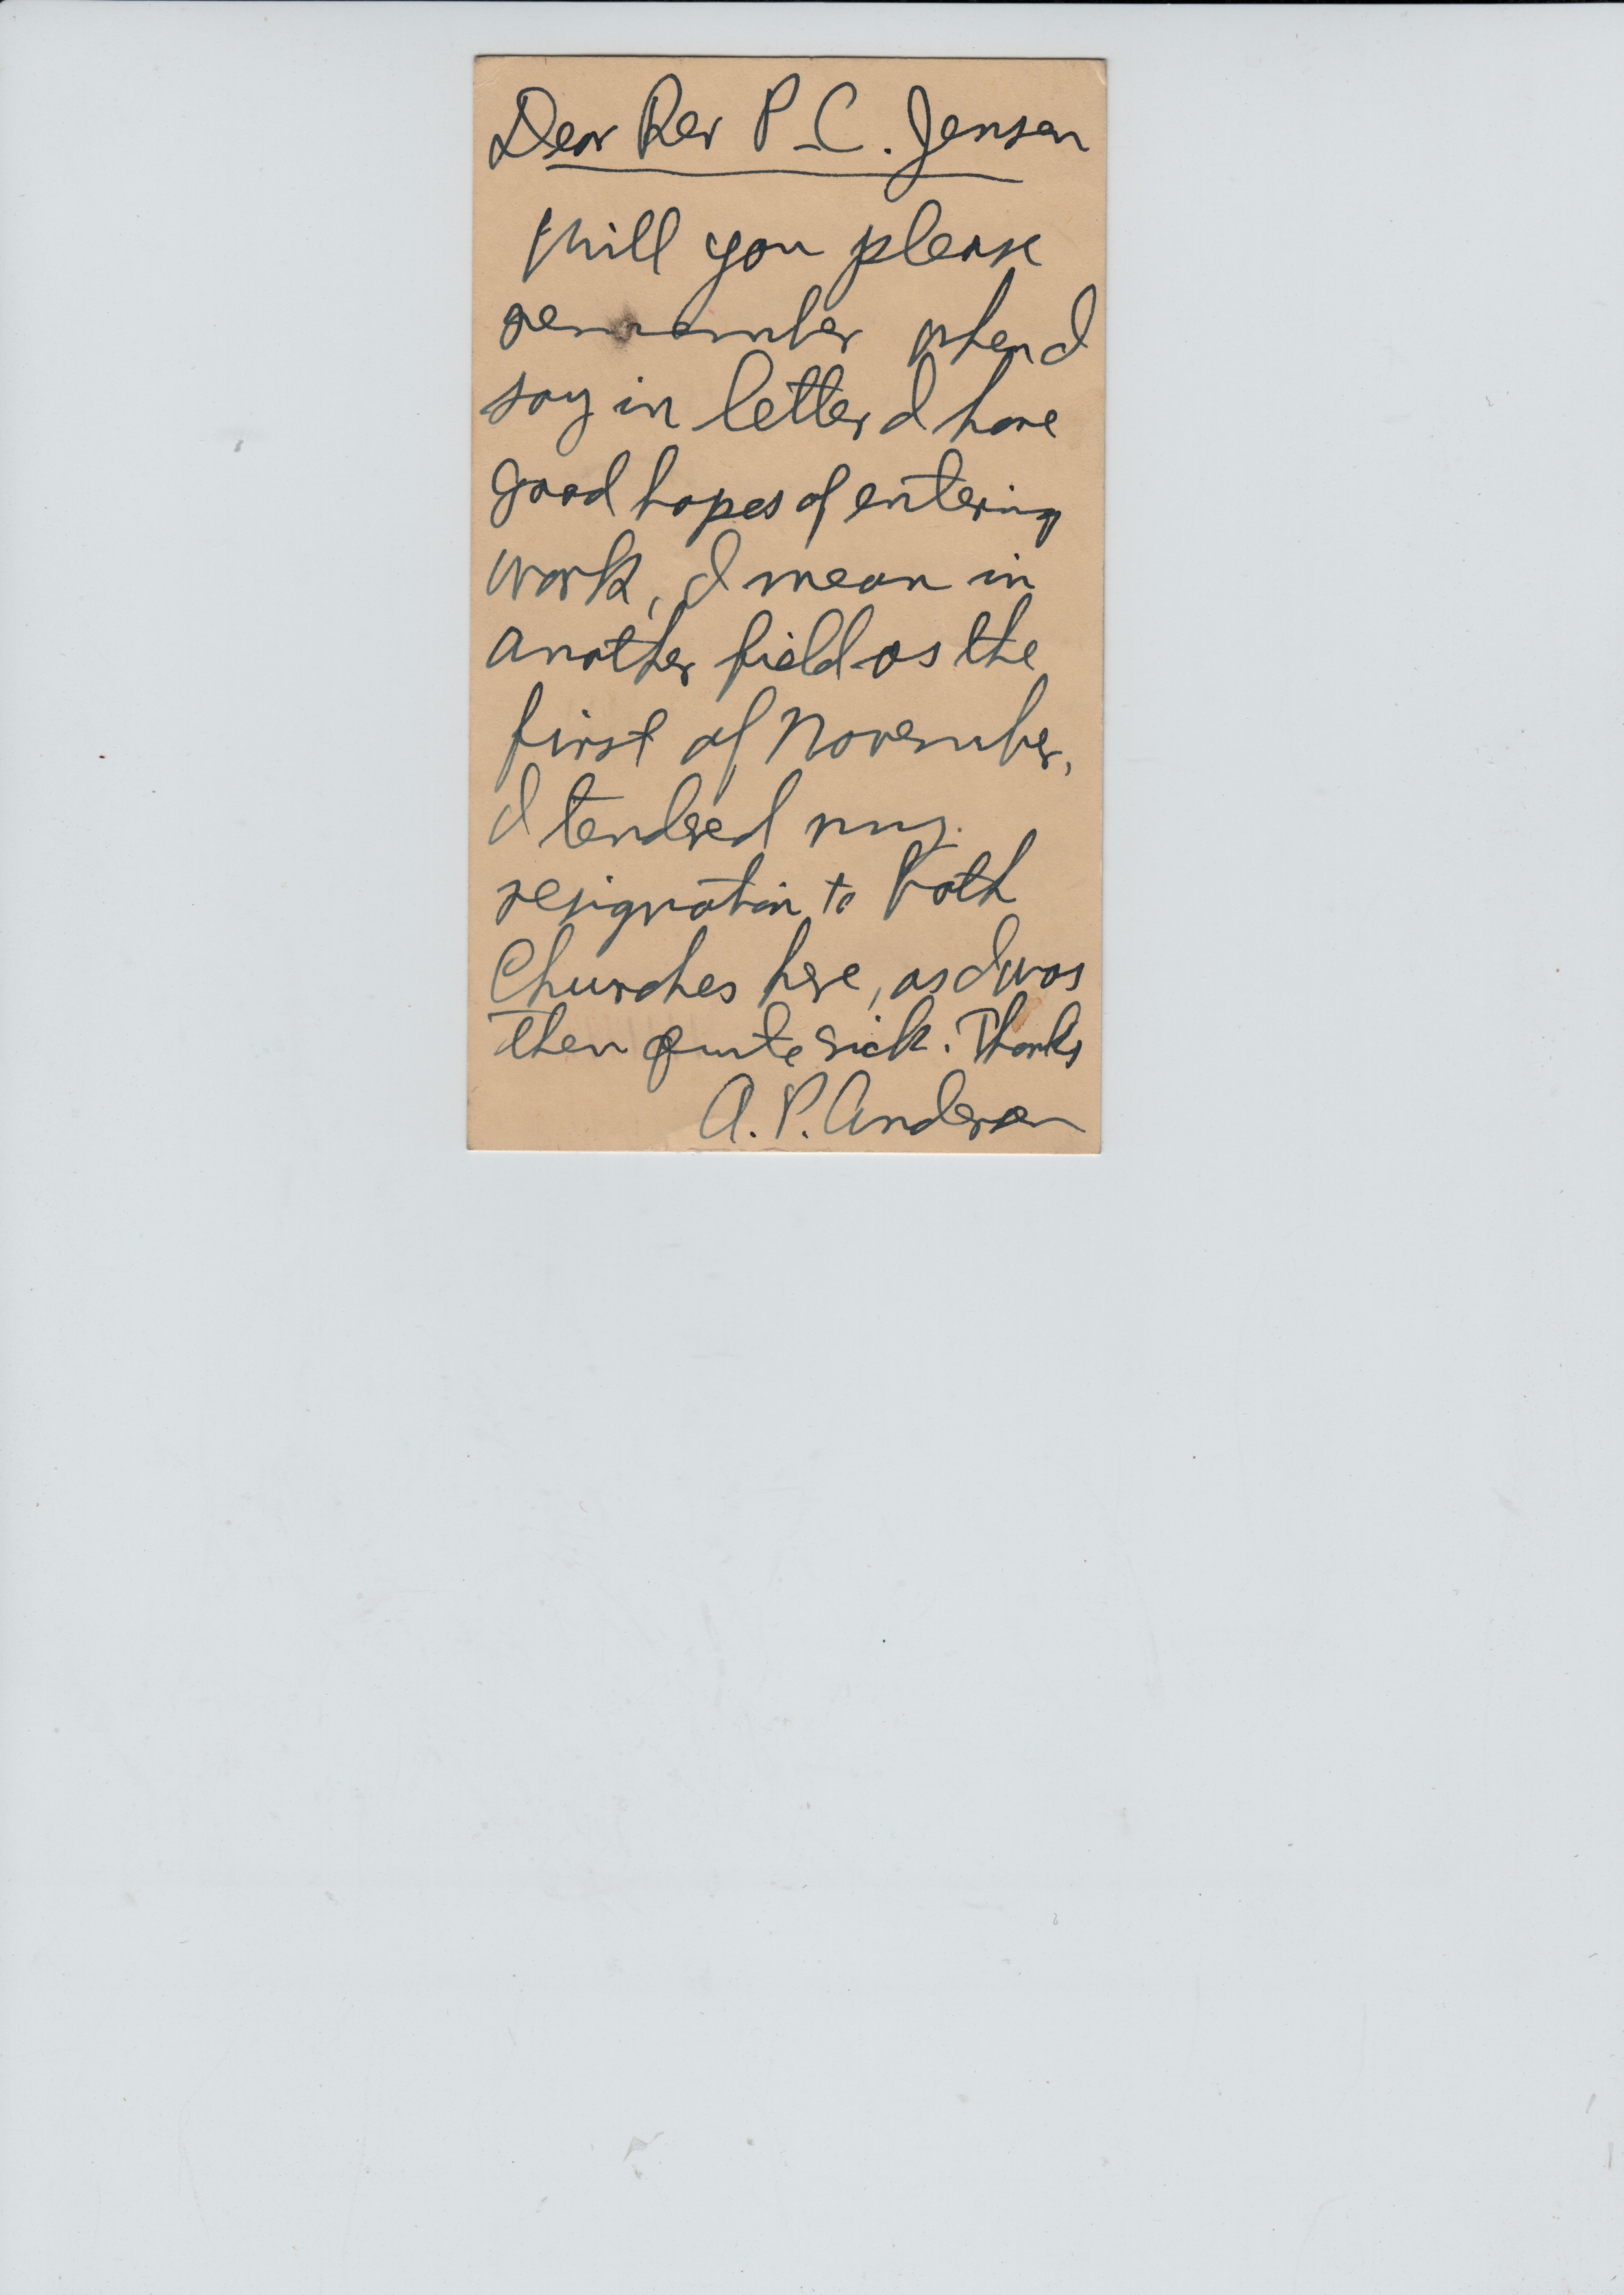 Dear Rev P. C. Jensen
Will you please
remember when I
say in letter I have
good hopes of entering
work, I mean in
another field as the
first of November,
I tendred my
resignation to both
Churches here, as I was
then quite sick. Thanks
A. P. Andersen